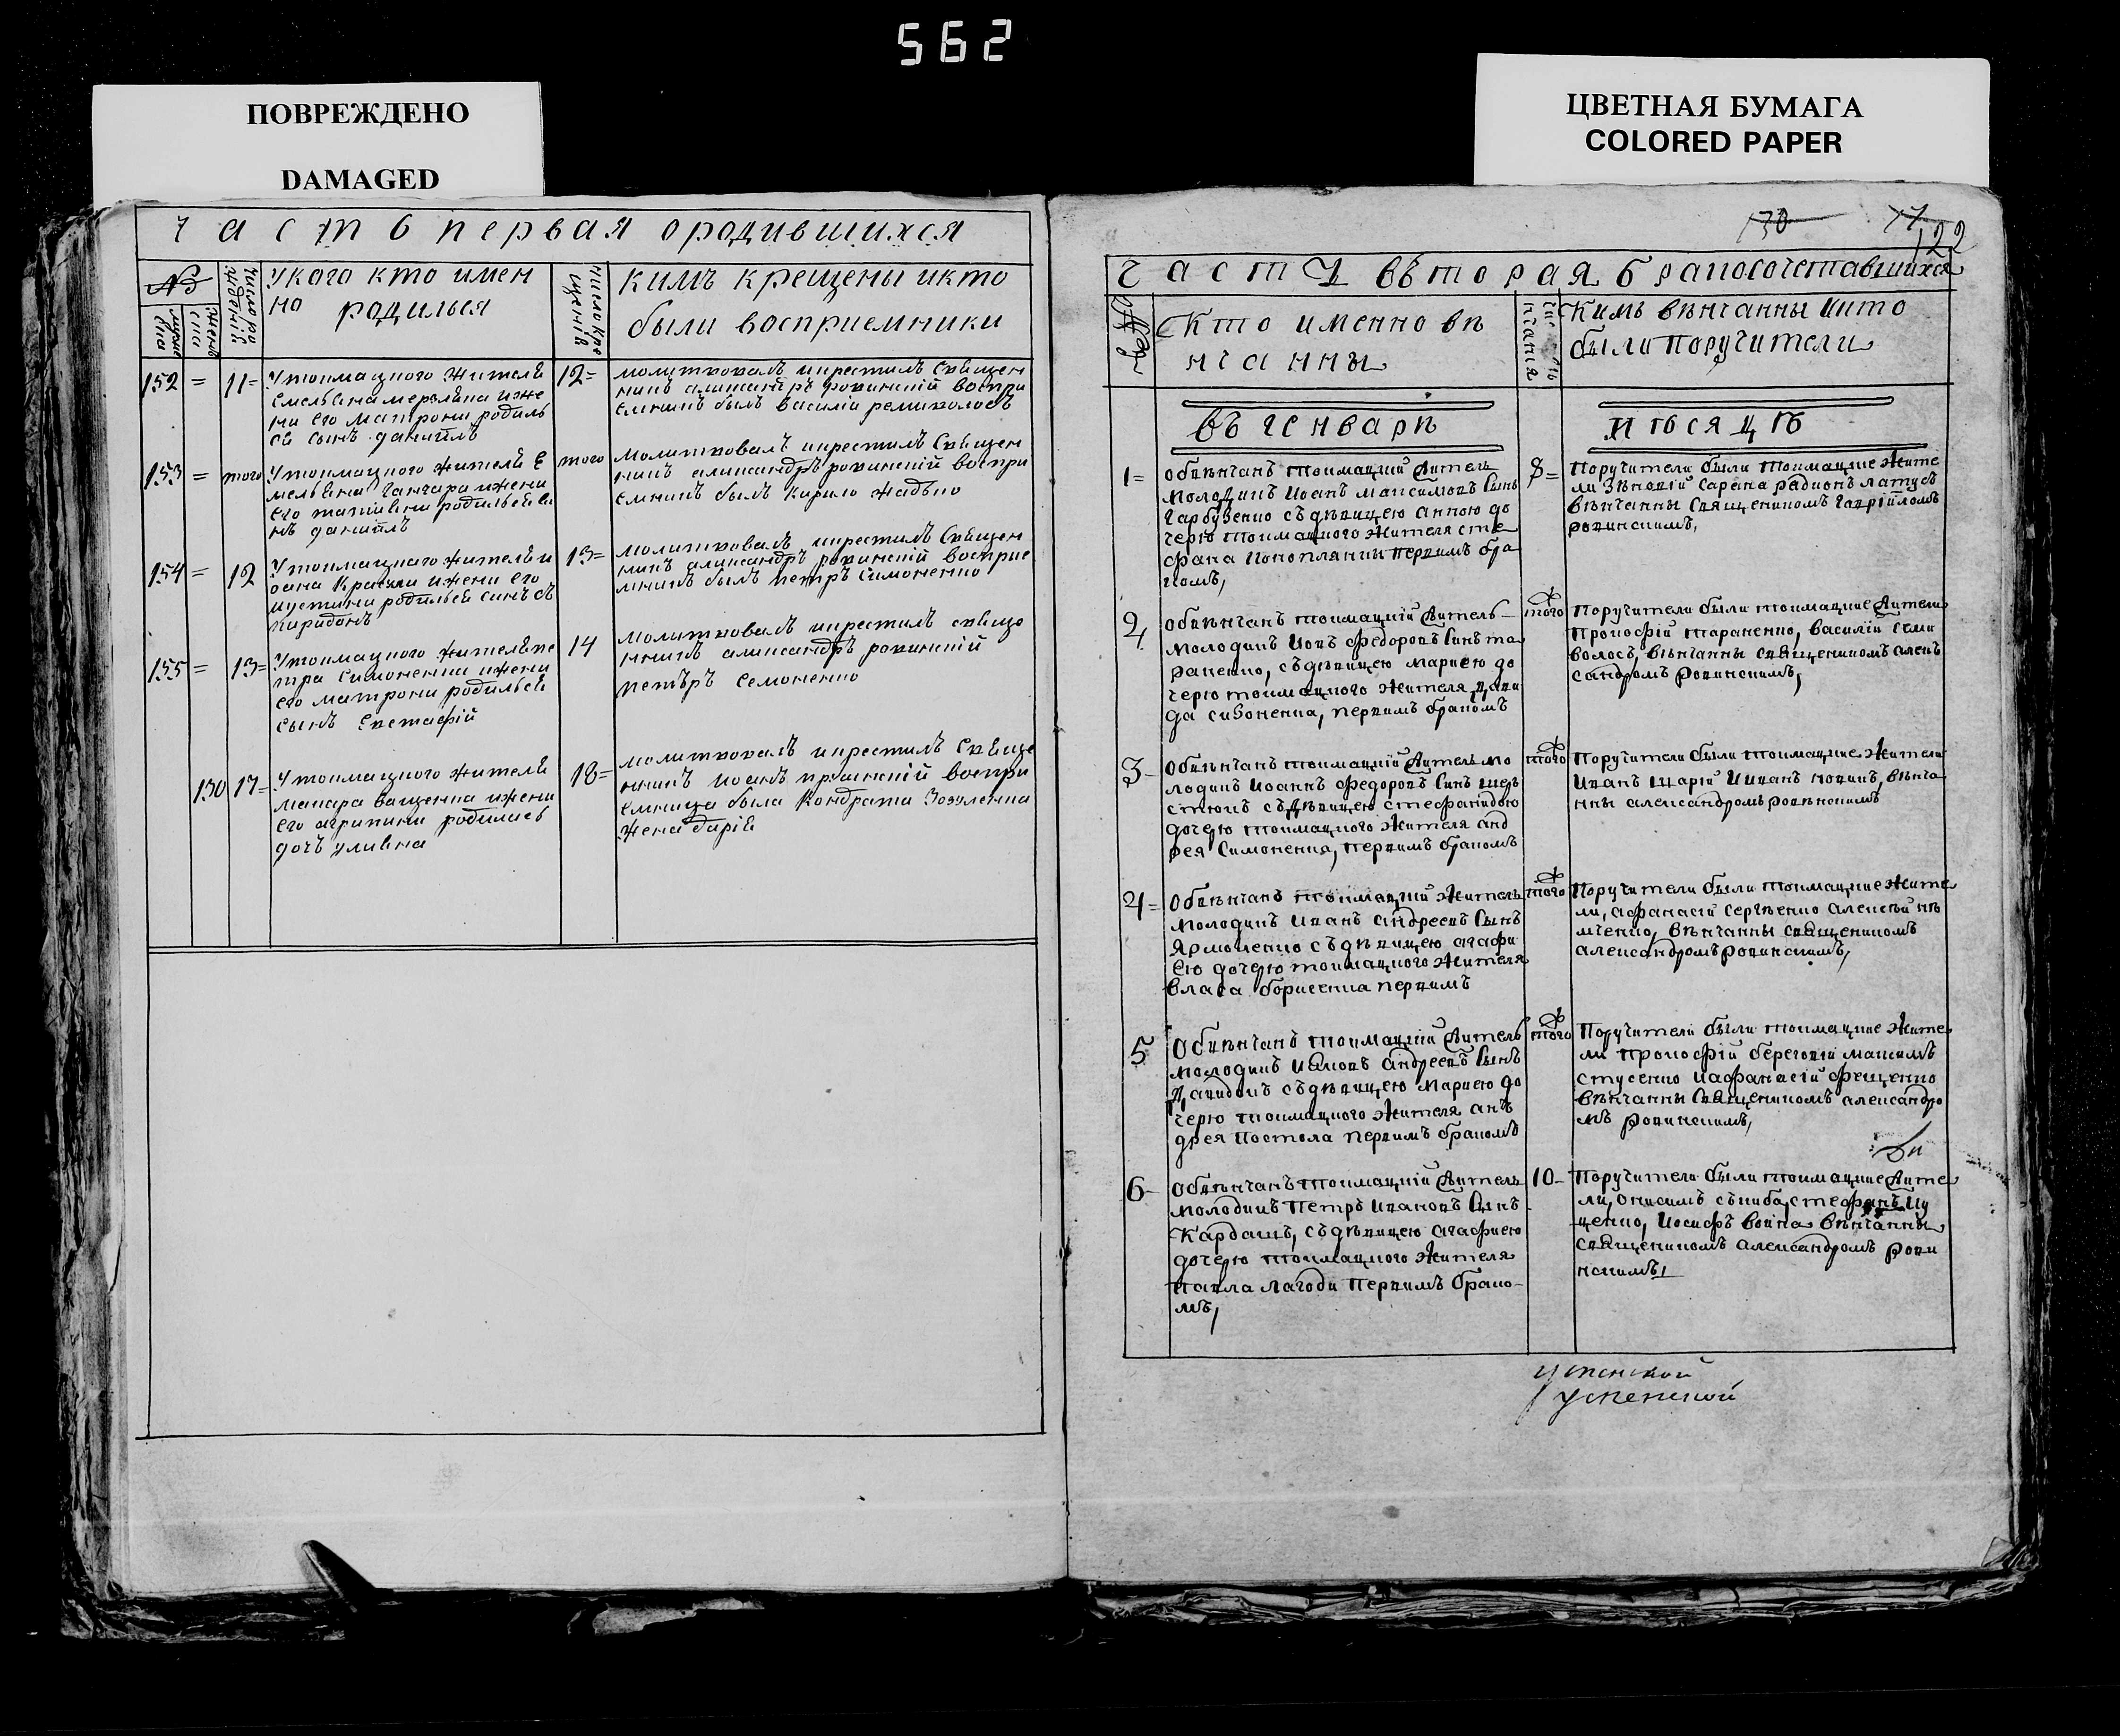 562
ПОВРЕЖДЕНО
DAMAGED
ЦВЕТНАЯ БУМАГА
COLORED PAPER
часть первая ородившихся
№
мужес
ска
женъ
ска
Число ро
жденій
Укого кто имен
но родилься
Кимъ крещены икто
были восприемники
152 = 11=
Утокмацкого жителя
Емельяна
его матрони родиль
ся сынъ даниилъ
12=
молитвовалъ икрестилъ Священ
никъ аликсандръ ровинскій воспри
емникъ былъ василій
153 = того
Утокмацкого жителя Е
мельяна Ганчара ижени
его татияни родилься си
нъ даниилъ
того
Молитвовалъ икрестилъ Священ
никъ аликсандръ ровинскій воспри
емникъ былъ Кирило
154 = 12
Утокмацкого жителя и
оана ижени его
иустини родилься синъ с
пиридонъ
13=
Молитвовалъ икрестилъ Священ
никъ аликсандръ ровинскій восприе
мникъ былъ Петръ Симоненко
155 = 13=
Утокмацкого жителя пе
тра Симоненка ижени
его матрони родилься
Сынъ Евстафій
14
Молитвовалъ икрестилъ свяще
нникъ аликсандръ ровинский
Петъръ Семоненко
130 17=
Утокмацкого жителя
макара ващенка ижени
его агрипини родилась
дочъ улияна
18=
молитвовалъ икрестилъ Свяще
нникъ Иоанъ воспри
емница была Кондрата Зозуленка
жена дарія
130 17
122
часть въторая Бракосочетавшихся
Кто именно вѣ
нчанны
Кимъ вѣнчанны икто
были поручители
въ генварѣ
мѣсяцѣ
1=
Обвѣнчанъ токмацкій житель
молодикъ Иоанъ максимовъ Сынъ
Гарбузенко съдѣвицею анною до
черю токмацкого жителя сте
фана Коноплянки первимъ бра
комъ,
8=
Поручители были токмацкие жите
ли Зѣновій Сарана радионъ латусъ
вѣнчанны Священикомъ Гавріиломъ
ровинскимъ,
2
Обвѣнчанъ токмацкій житель
молодикъ Иовъ федоровъ Синъ та
раненко, съдѣвицею мариею до
черю токмацкого жителя дави
да сизоненка, первимъ бракомъ
того
Поручители были токмацкие жители
Прокофій тараненко, василій
волосъ, вѣнчанны священикомъ алекъ
сандромъ ровинскимъ,
3
Обвѣнчанъ токмацкій житель мо
лодикъ Иоаннъ федоровъ Синъ шер
стюкъ съдѣвицею стефанидою
дочерю токмацкого жителя анд
рея Симоненка, первимъ бракомъ
того
Поручители были токмацкие жители
Иванъ Шарій Иванъ новикъ, вѣнча
нны александромъ ровѣнскимъ
4=
Обвѣнчанъ токмацкій житель
молодикъ Иванъ андреевъ Сынъ
Ярмоленко съдѣвицею агафи
ею дочерю токмацкого жителя
власа борисенка первимъ
того
Поручители были токмацкие жите
ли, афанасій Сергѣенко алексѣй нѣ
мченко, вѣнчанны священикомъ
александромъ ровинскимъ,
5
Обвѣнчанъ токмацкій житель
молодикъ Иаковъ андреевъ Сынъ
съдѣвицею мариею до
черю токмацкого жителя анъ
дрея Постола первимъ бракомъ
того
Поручители были токмацкие жите
ли Прокофій береговій максимъ
стусенко иафанасій фещенко
вѣнчанны священикомъ александро
мъ ровинскимъ,
6
Обвѣнчанъ токмацкій житель
молодикъ Петръ Ивановъ Сынъ
Кардашъ, съдѣвицею агафиею
дочерю токмацкого жителя
Павла лагоди первимъ брако-
мъ,
10-
Поручители были токмацкие жите
ли, онисимъ стефанъ
Иосифъ война вѣнчанны
священикомъ александромъ рови
нскимъ,
успенской
успенской